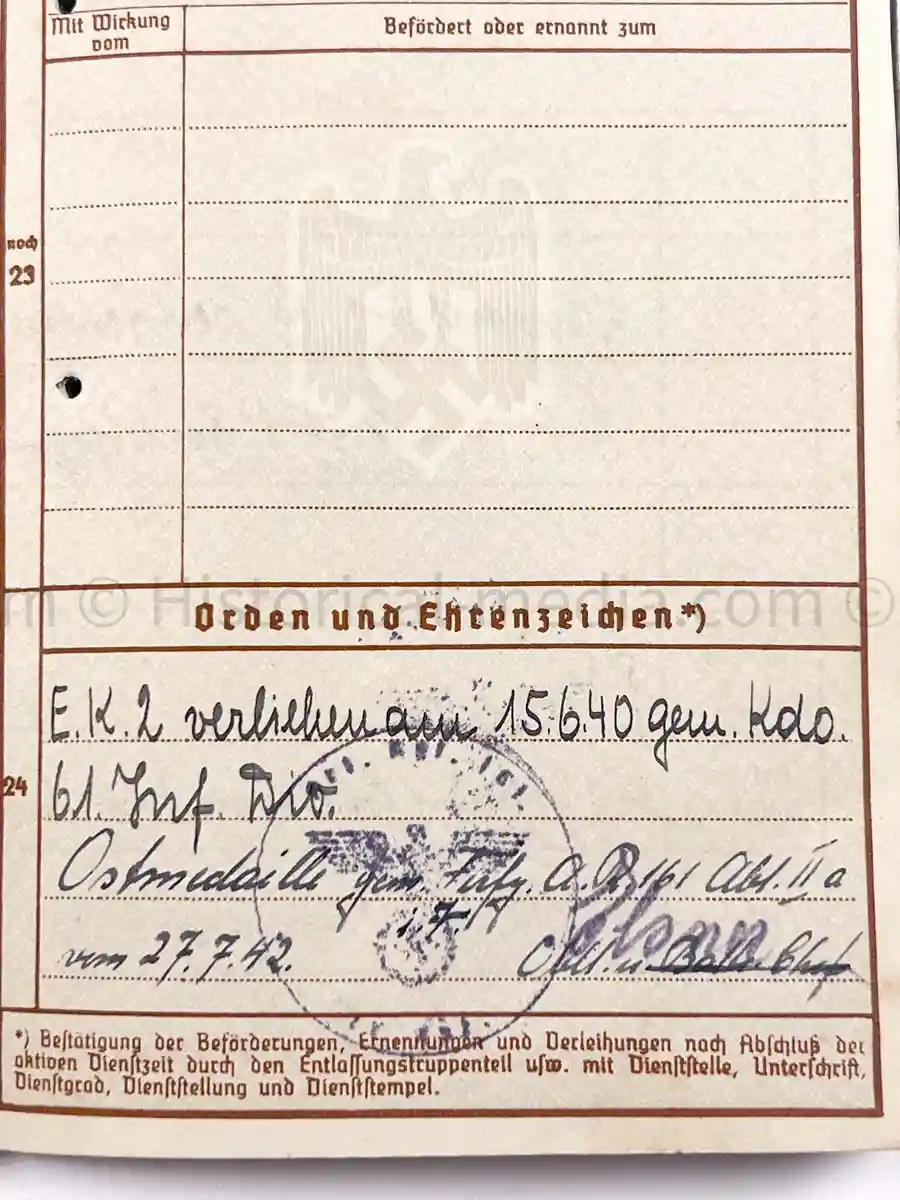 Mit Wirkung vom
Befördert oder ernannt zum
noch
23
m © Historical-media.com ©
Orden und Ehrenzeichen*)
24
E.K.2 verliehen am 15.6.40 gem. Kdo.
61. Inf. Div.
Ostmedaille gem. Verfg. A.R. 161 Abt. IIa
vom 27.7.42.
I.V.
*) Bestätigung der Beförderungen, Ernennungen und Verleihungen nach Abschluß der
aktiven Dienstzeit durch den Entlassungstruppenteil usw. mit Dienststelle, Unterschrift,
Dienstgrad, Dienststellung und Dienststempel.